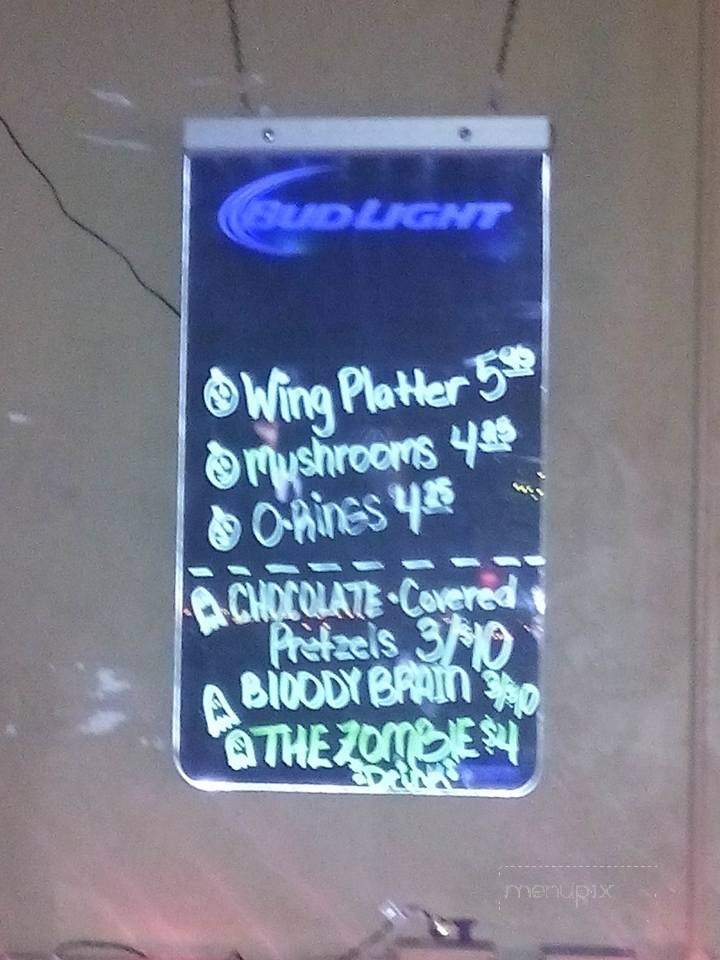 BUD LIGHT
Wing Platter 5.95
Mushrooms 4.25
O-Rings 4.25
CHOCOLATE-Covered
Pretzels 3/$10
BlOODY BRAIN 3/$10
THE ZOMBIE $4
"Drink"
menupix